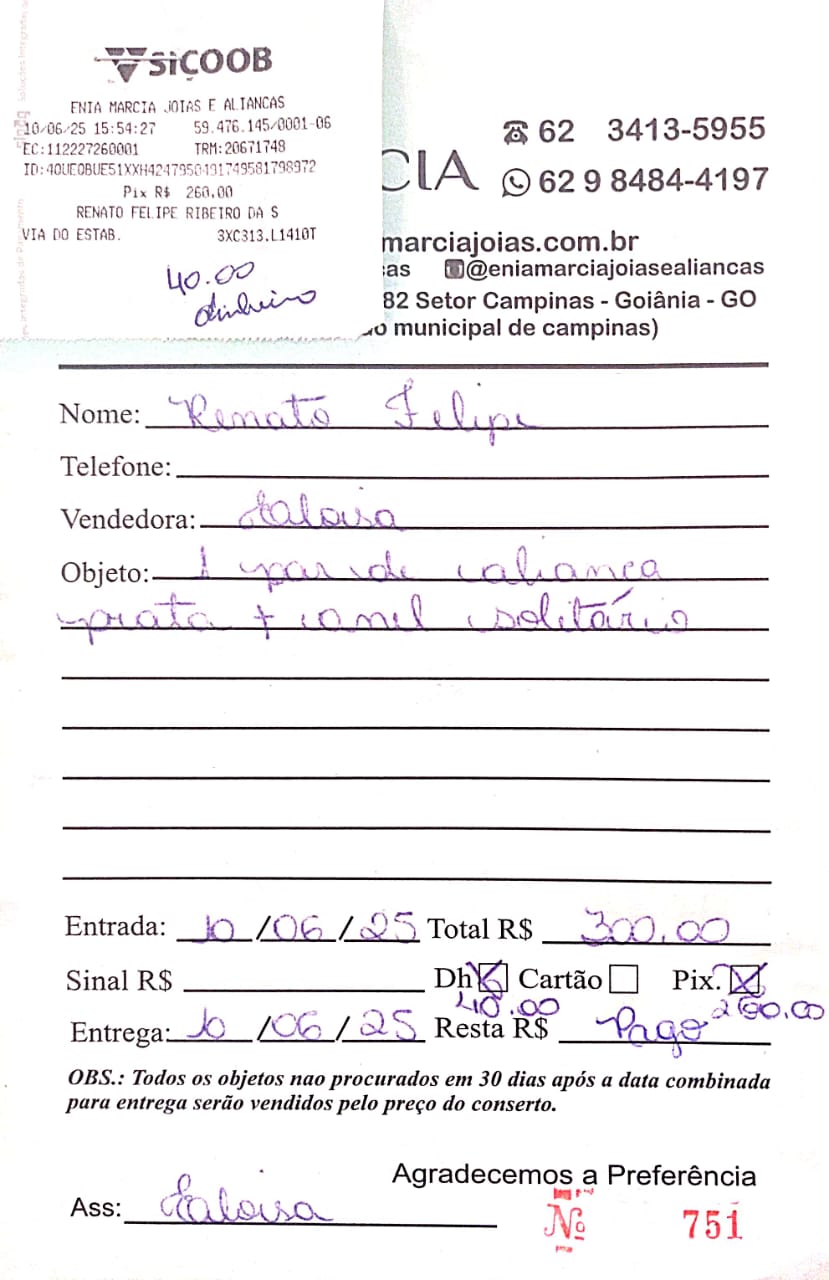 SICOOB
ENIA MARCIA JOIAS E ALIANCAS
10/06/25 15:54:27 59.476.145/0001-06
EC:112227260001 TRM:20671748
Pix R$ 260.00
RENATO FELIPE RIBEIRO DA S
VIA DO ESTAB. 3XC313.L1410T
40.00
dinheiro
CIA
62 3413-5955
62 9 8484-4197
marciajoias.com.br
as @eniamarciajoiasealiancas
82 Setor Campinas - Goiânia - GO
o municipal de campinas)
Nome: Renato Felipe
Telefone:
Vendedora: Haloisa
Objeto: 1 par de aliança
prata + anel solitário
Entrada: 10/06/25 Total R$ 300,00
Sinal R$ Dh Cartão Pix.
40.00 260.00
Entrega: 10/06/25 Resta R$ Pago
OBS.: Todos os objetos nao procurados em 30 dias após a data combinada
para entrega serão vendidos pelo preço do conserto.
Agradecemos a Preferência
Ass: Haloisa
Nº 751